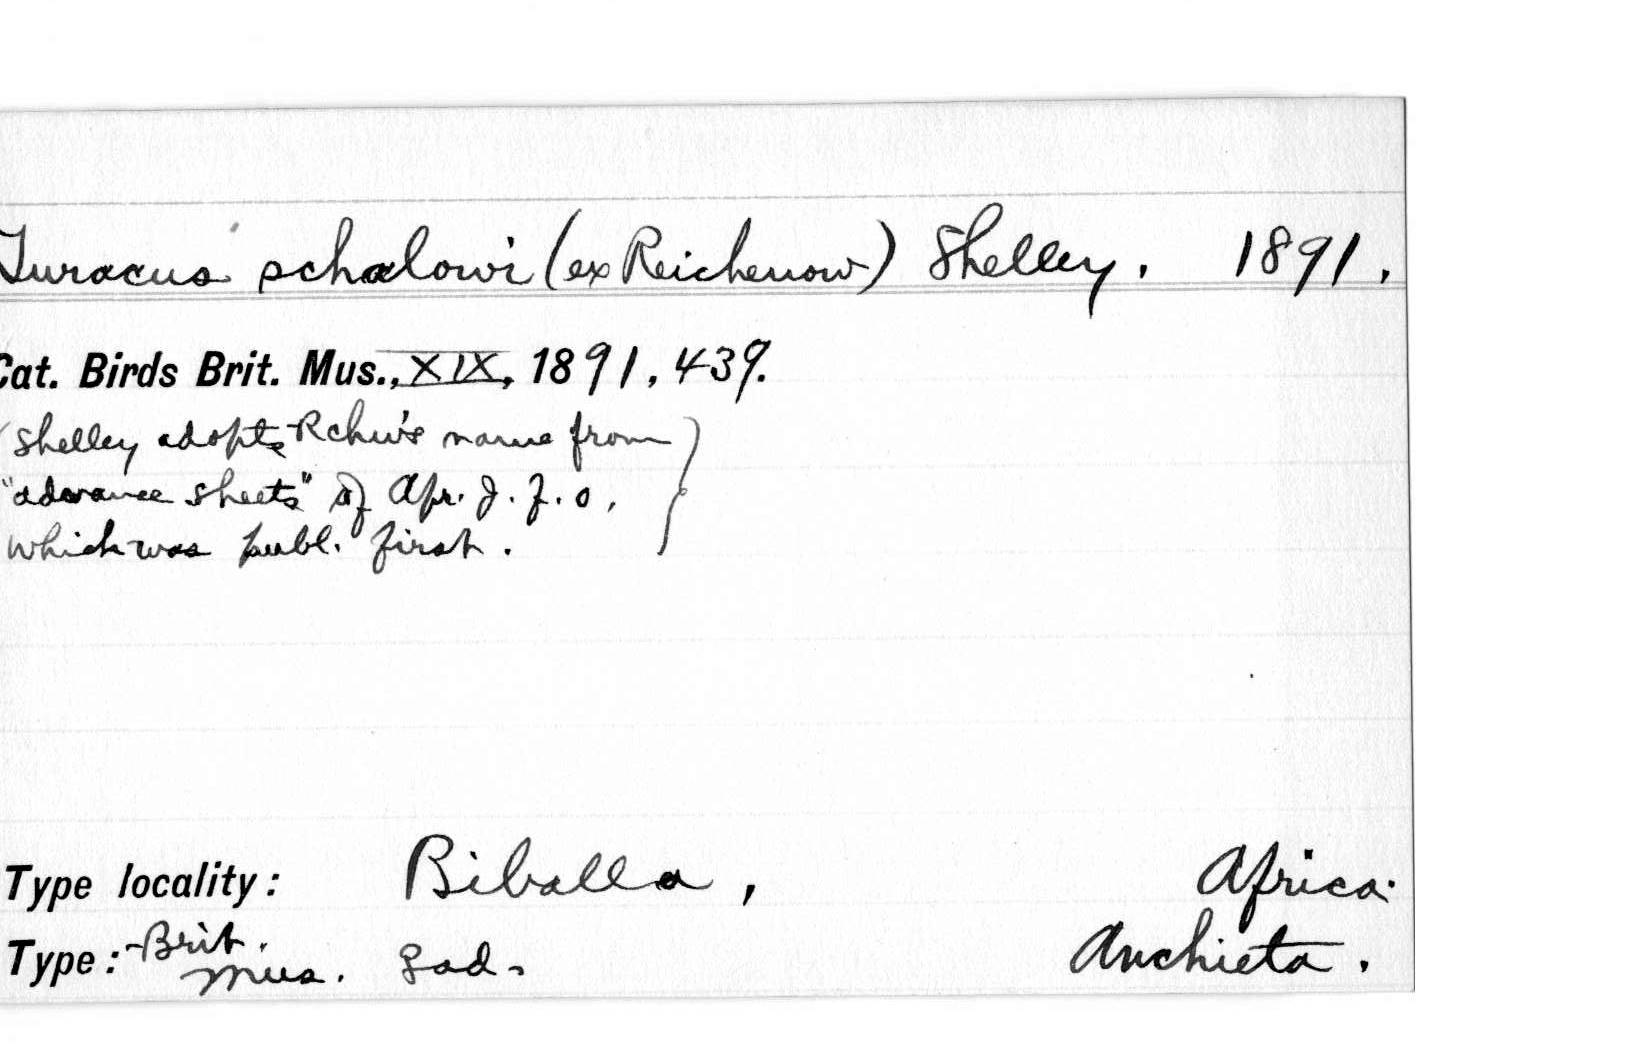 Turacus schalowi (ex Reichenow) Shelley. 1891.
Cat. Birds Brit. Mus., XIX, 1891, 439.
(Shelley adopts Rchw's name from
"advance sheets" of Apr. J. f. O.,
which was publ. first.)
Type locality: Biballa, Africa.
Type: Brit. Mus. ad. Anchieta.